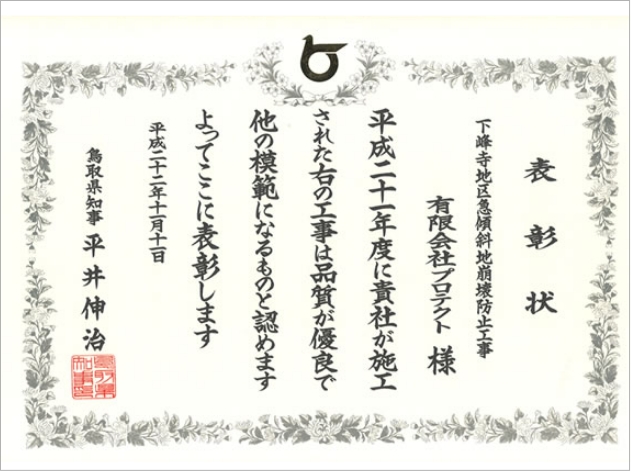 表彰状
下峰寺地区急傾斜地崩壊防止工事
有限会社プロテクト 様
平成二十一年度に貴社が施工
された右の工事は品質が優良で
他の模範になるものと認めます
よってここに表彰します
平成二十二年十一月十一日
鳥取県知事 平井伸治